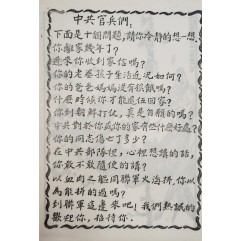 中共官兵們：
下面是十個問題，請你冷靜的想一想，
你離家幾年了？
近來你收到家信嗎？
你的老婆孩子生活近況如何？
你的爸爸媽媽沒有挨餓嗎？
什麼時候你才能返回家？
到朝鮮打仗，真是自願的嗎？
中共對於你或你的家有些什麼好處？
你的同志傷亡了多少？
在中共部隊裡，心裡想講的話，
你敢不敢隨便的講？
以血肉之軀同聯軍火海拼，你以
為能拼的過嗎？
到聯軍這邊來吧！我們熱誠的
歡迎你，招待你．